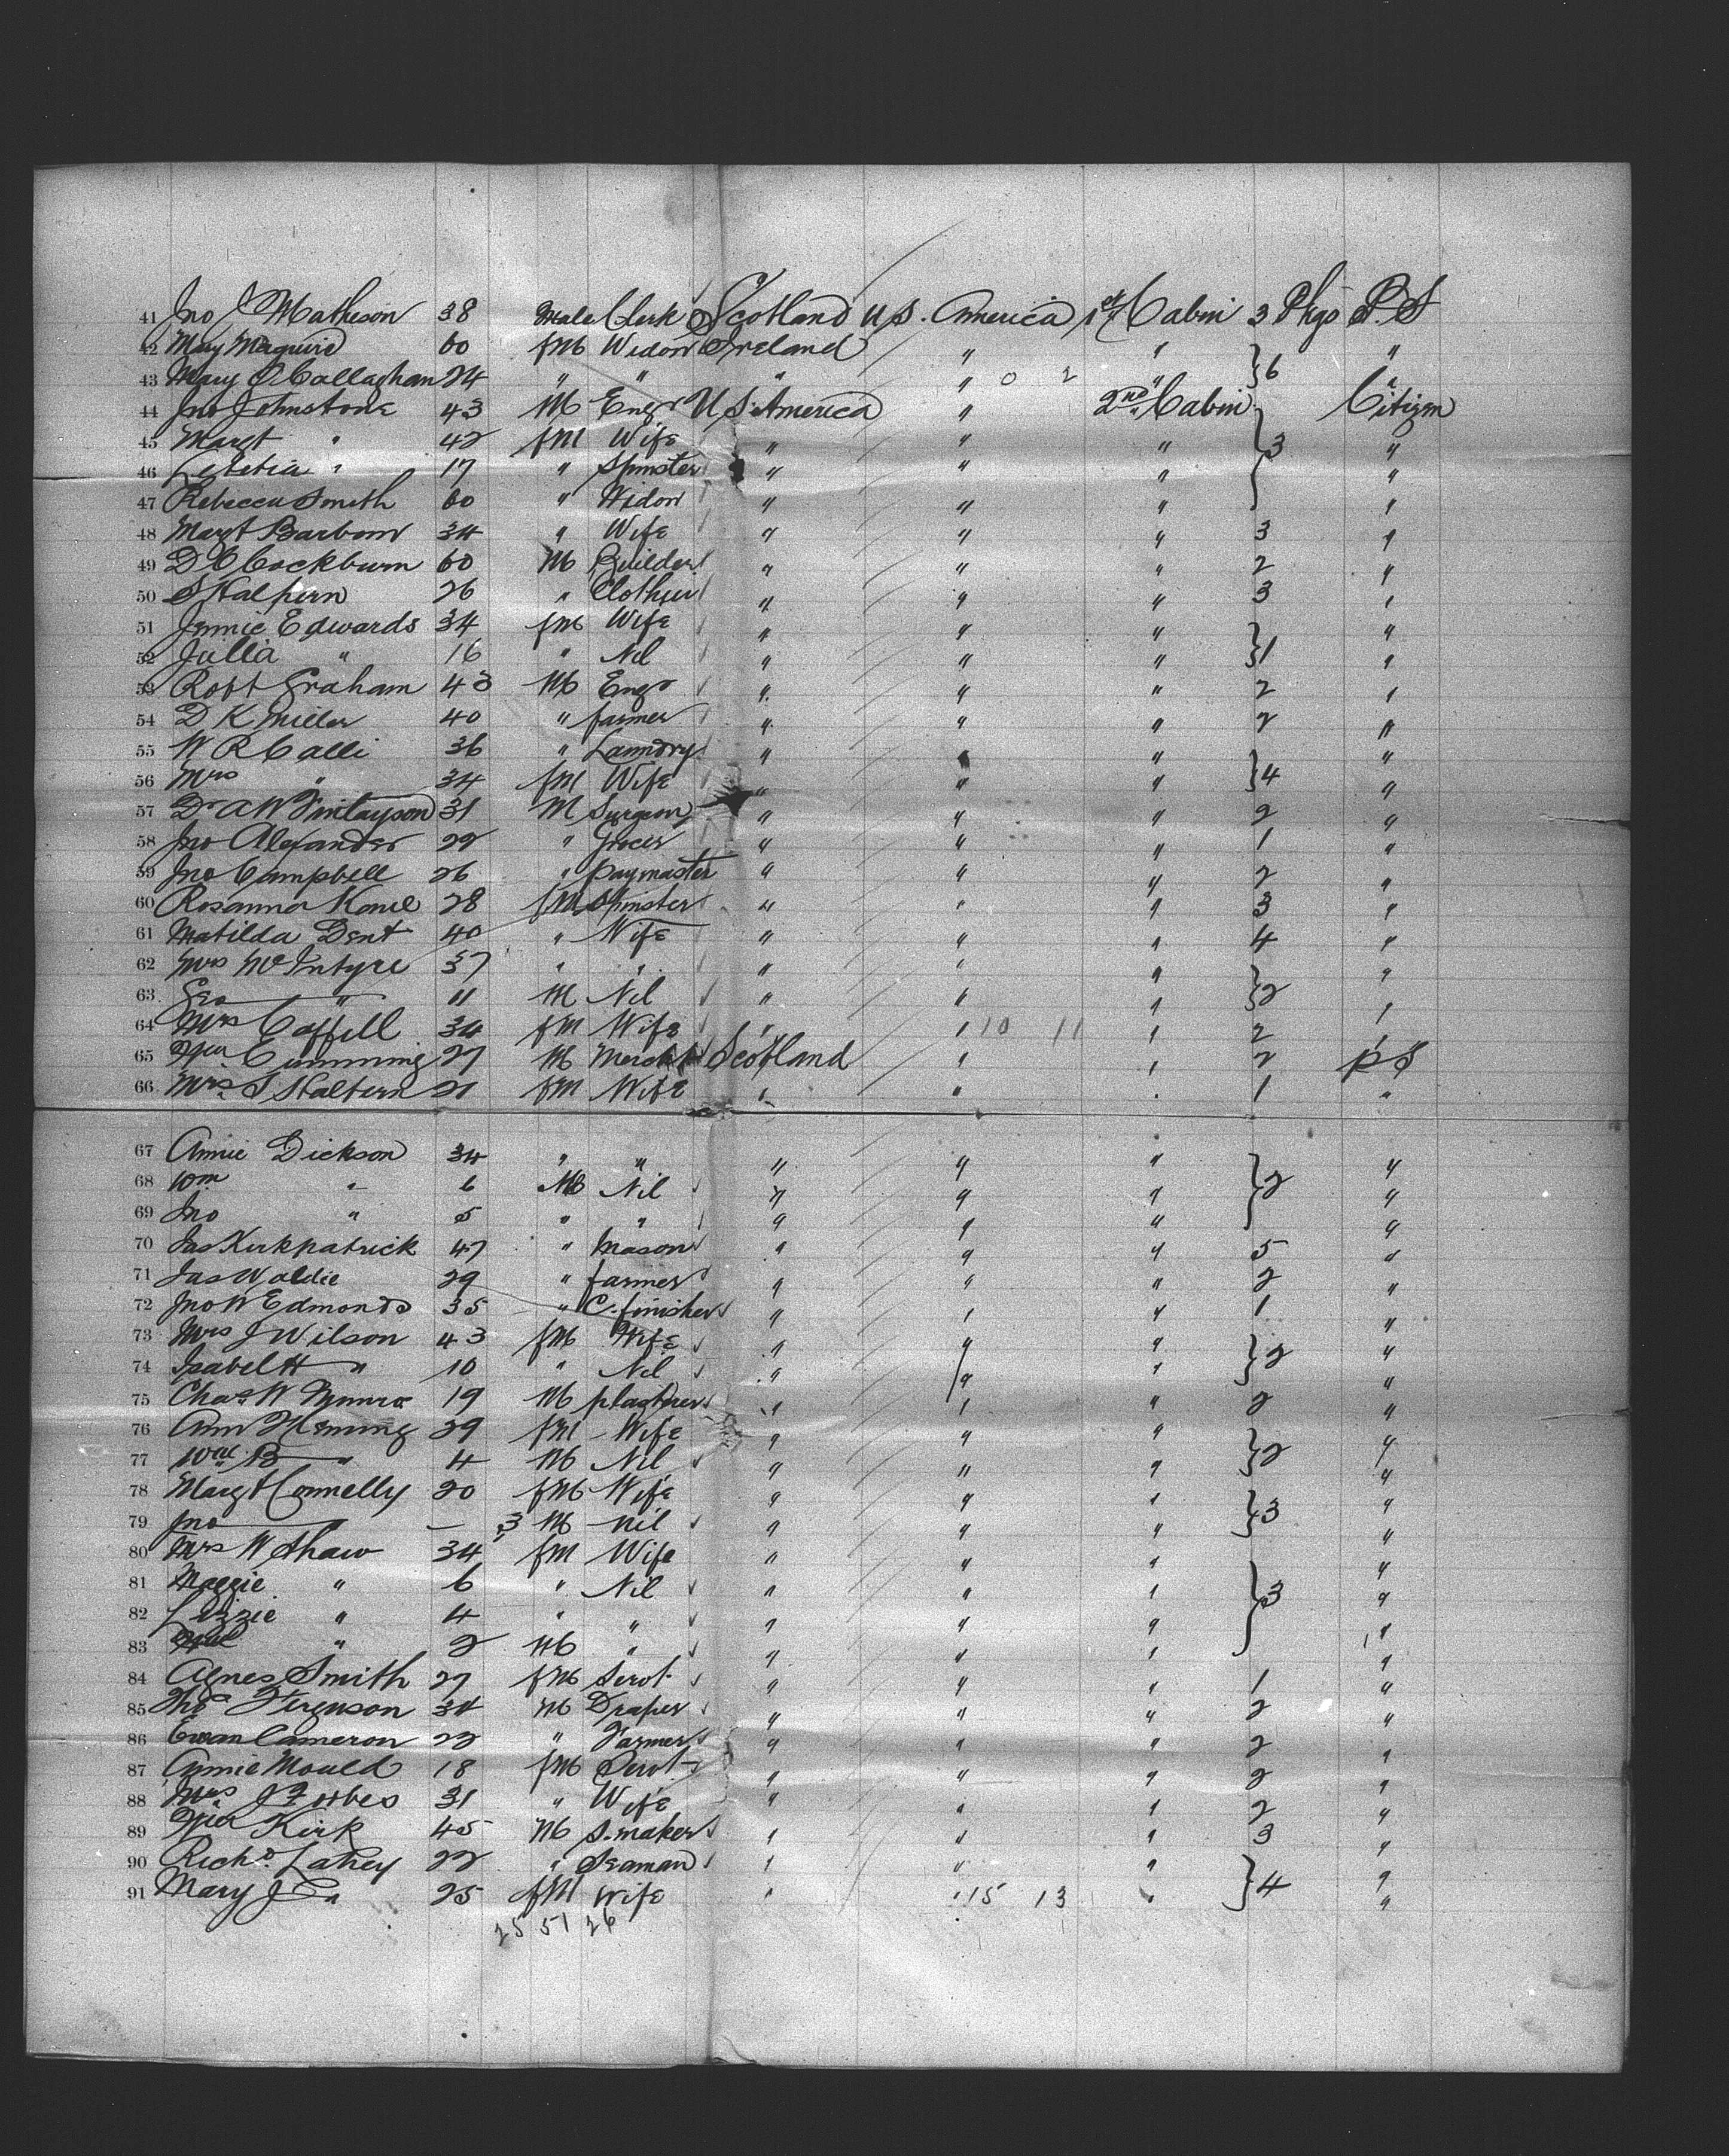 41 Jno J Matheson 38 Male Clerk Scotland U S. America 1st Cabin 3 Pkgs P. S
42 Mary Maguire 60 fM Widow Ireland " " "
43 Mary O'Callaghan 24 " " " " 0 2 " } 6 "
44 Jno Johnstone 43 M Engr U S. America " 2nd Cabin Citizen
45 Margt " 42 fM Wife " " " } 3 "
46 Letitia " 17 " Spinster " " " "
47 Rebecca Smith 60 " Widow " " " "
48 Margt Barbour 34 " Wife " " " 3 "
49 D C Cockburn 60 M Builder " " " 2 "
50 S Halpern 26 " Clothier " " " 3 "
51 Jennie Edwards 34 fM Wife " " " "
52 Julia " 16 " Nil " " " } 1 "
53 Robt Graham 43 M Engr " " " 2 "
54 D K Miller 40 " farmer " " " 2 "
55 W R Calli 36 " Laundry " " " "
56 Mrs " 34 fM Wife " " " } 4 "
57 Dr A W Finlayson 31 M Surgeon " " " 2 "
58 Jno Alexander 22 " Grocer " " " 1 "
59 Jno Campbell 26 " paymaster " " " 2 "
60 Rosanna Kane 28 fM Spinster " " " 3 "
61 Matilda Dent 40 " Wife " " " 4 "
62 Mrs McIntyre 37 " " " " " "
63. Geo " 11 M Nil " " " } 2 "
64 Mrs Caffell 34 fM Wife " " 10 11 " 2 "
65 Wm Cumming 27 M Mercht Scotland " " 2 P S
66. Mrs S Haltern 21 fM Wife " " " 1 "
67 Annie Dickson 34 " " " " " "
68 Wm " 6 M Nil " " " } 2 "
69 Jno " 5 " " " " " "
70 Jas Kirkpatrick 47 " Mason " " " 5 "
71 Jas Waldie 29 " farmer " " " 2 "
72 Jno W Edmonds 35 " C. finisher " " " 1 "
73 Mrs J Wilson 43 fM Wife " " " "
74 Isabel H " 10 " Nil " " " } 2 "
75 Chas W Munro 19 M plasterer " " " 2 "
76 Ann Fleming 29 fM Wife " " " "
77 Wm B " 4 M Nil " " " } 2 "
78 Margt Connelly 20 fM Wife " " " "
79 Jno " — 3 M Nil " " " } 3 "
80 Mrs W Shaw 34 fM Wife " " " "
81 Maggie " 6 " Nil " " " } 3 "
82 Lizzie " 4 " " " " " "
83 " 2 M " " " " "
84 Agnes Smith 27 fM Servt " " " 1 "
85 Thos Ferguson 34 M Draper " " " 2 "
86 Ewan Cameron 23 " Farmer " " " 2 "
87 Annie Mould 18 fM Servt " " " 2 "
88 Mrs J Forbes 31 " Wife " " " 2 "
89 Kirk 45 M S. maker " " " 3 "
90 Richd Lahey 22 " Seaman " " " "
91 Mary J " 25 fM Wife " " 15 13 " } 4 "
25 51 26